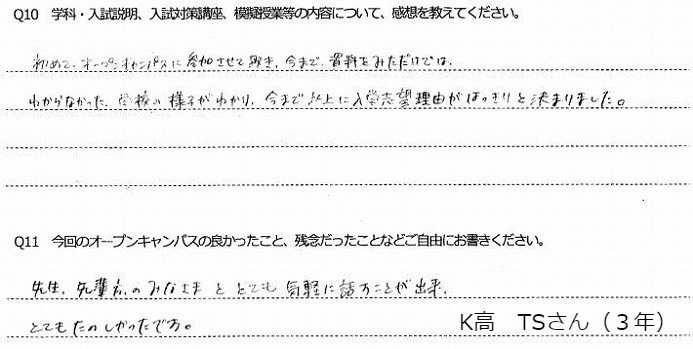 Q10 学科・入試説明、入試対策講座、模擬授業等の内容について、感想を教えてください。
初めて、オープンキャンパスに参加させて頂き、今まで、資料をみただけでは、
わからなかった、学校の様子がわかり、今まで以上に入学志望理由がはっきりと決まりました。
Q11 今回のオープンキャンパスの良かったこと、残念だったことなどご自由にお書きください。
先生、先輩方のみなさまととても気軽に話すことが出来、
とてもたのしかったです。
K高 TSさん（３年）